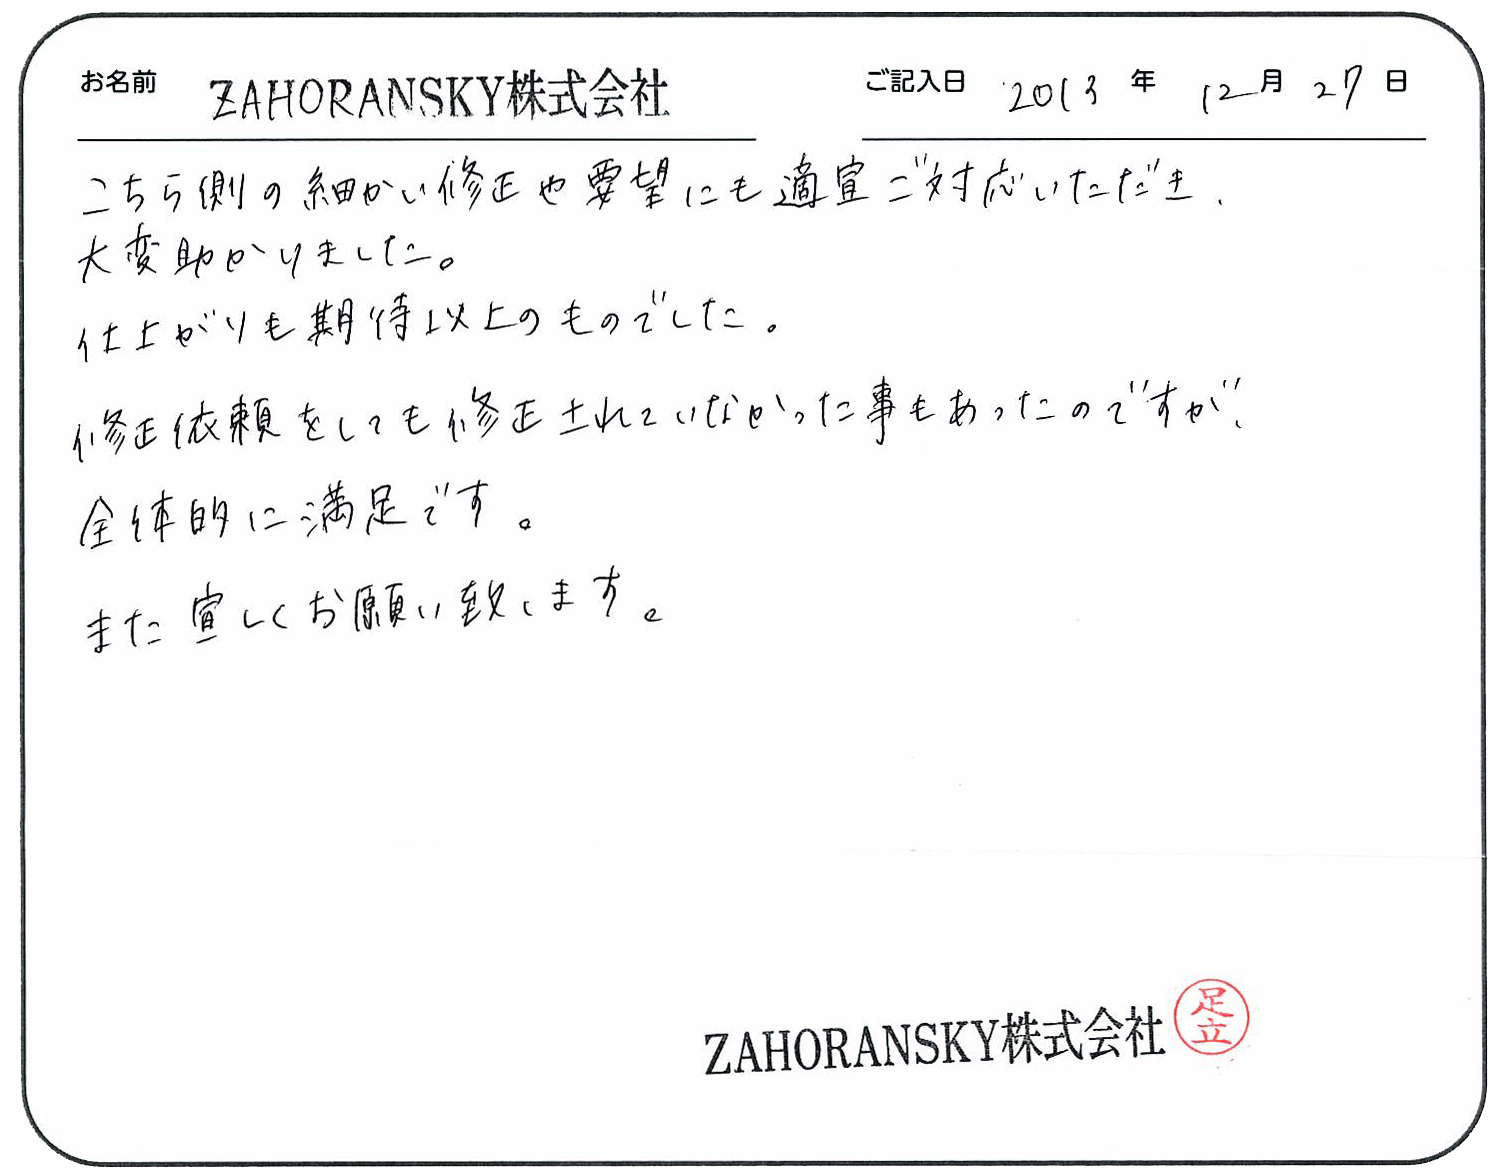 お名前 ZAHORANSKY株式会社 ご記入日 2013 年 12 月 27 日
こちら側の細かい修正や要望にも適宜ご対応いただき、
大変助かりました。
仕上がりも期待以上のものでした。
修正依頼をしても修正されていなかった事もあったのですが、
全体的に満足です。
また宜しくお願い致します。
ZAHORANSKY株式会社 足立